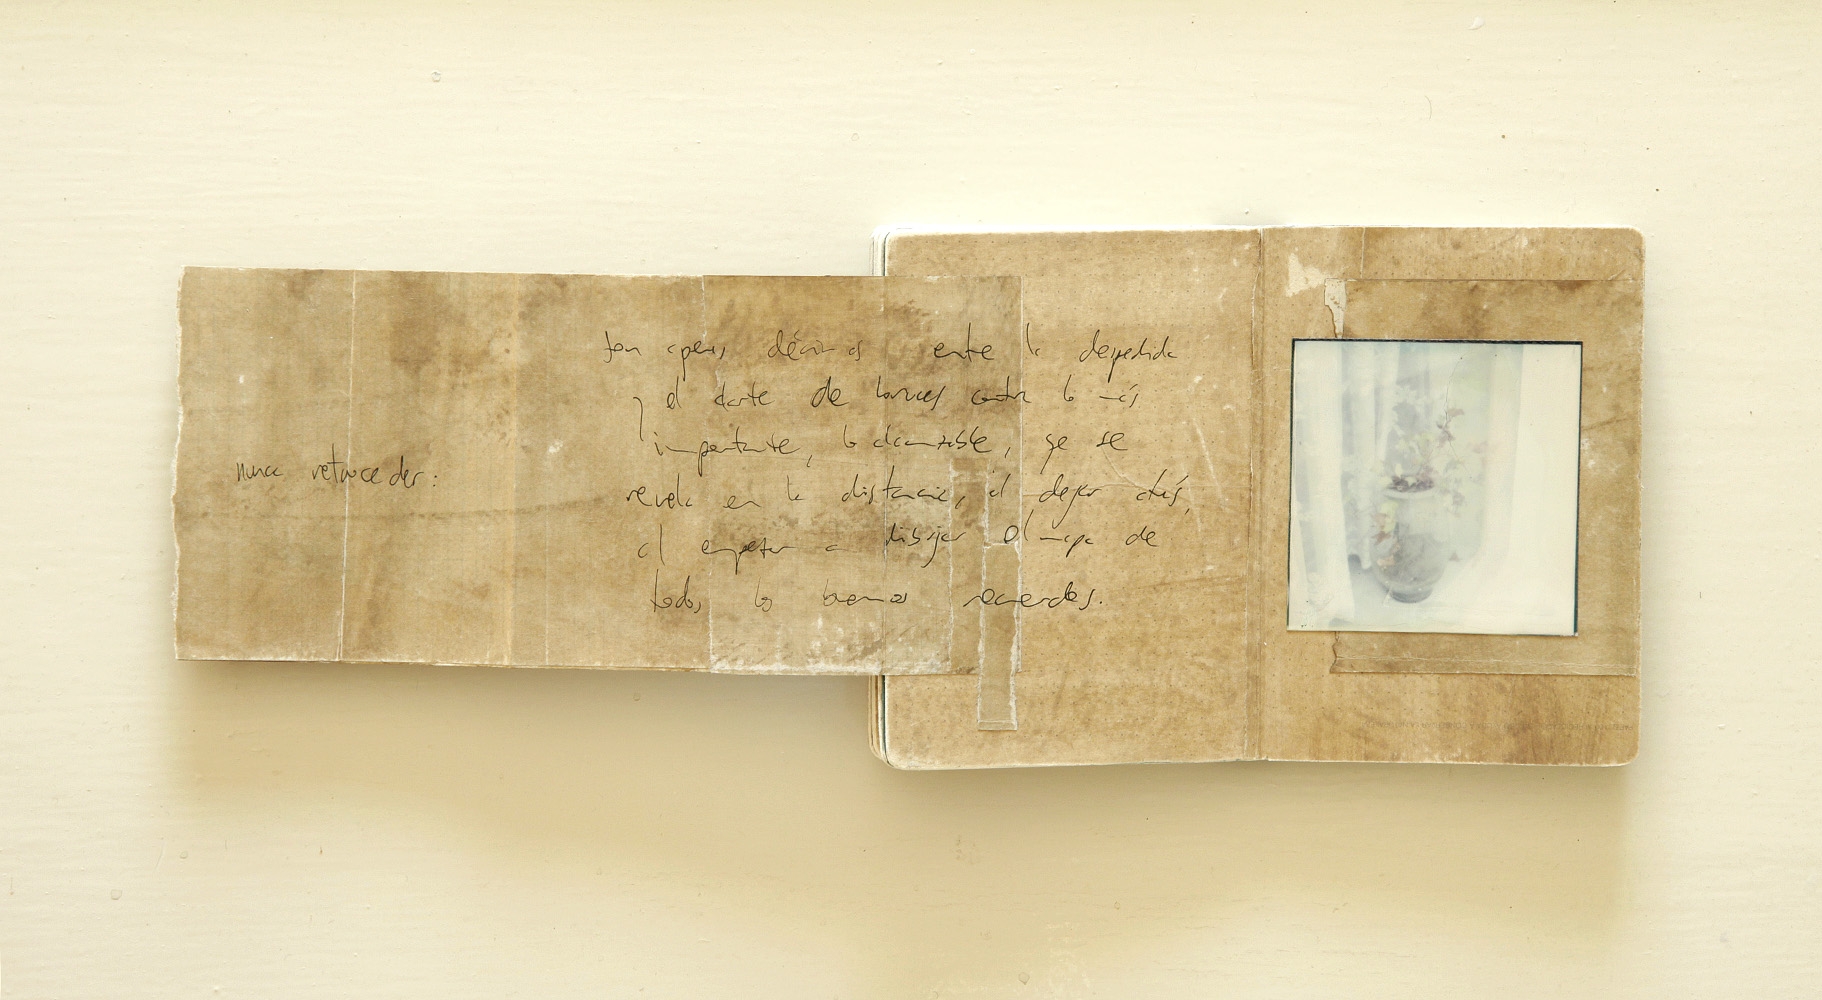 nunca retroceder:
son apenas décimas entre la despedida
y el darte de bruces contra lo más
importante, lo alcanzable, que se
revela en la distancia, al dejar atrás,
al empezar a dibujar el mapa de
todos los buenos recuerdos.